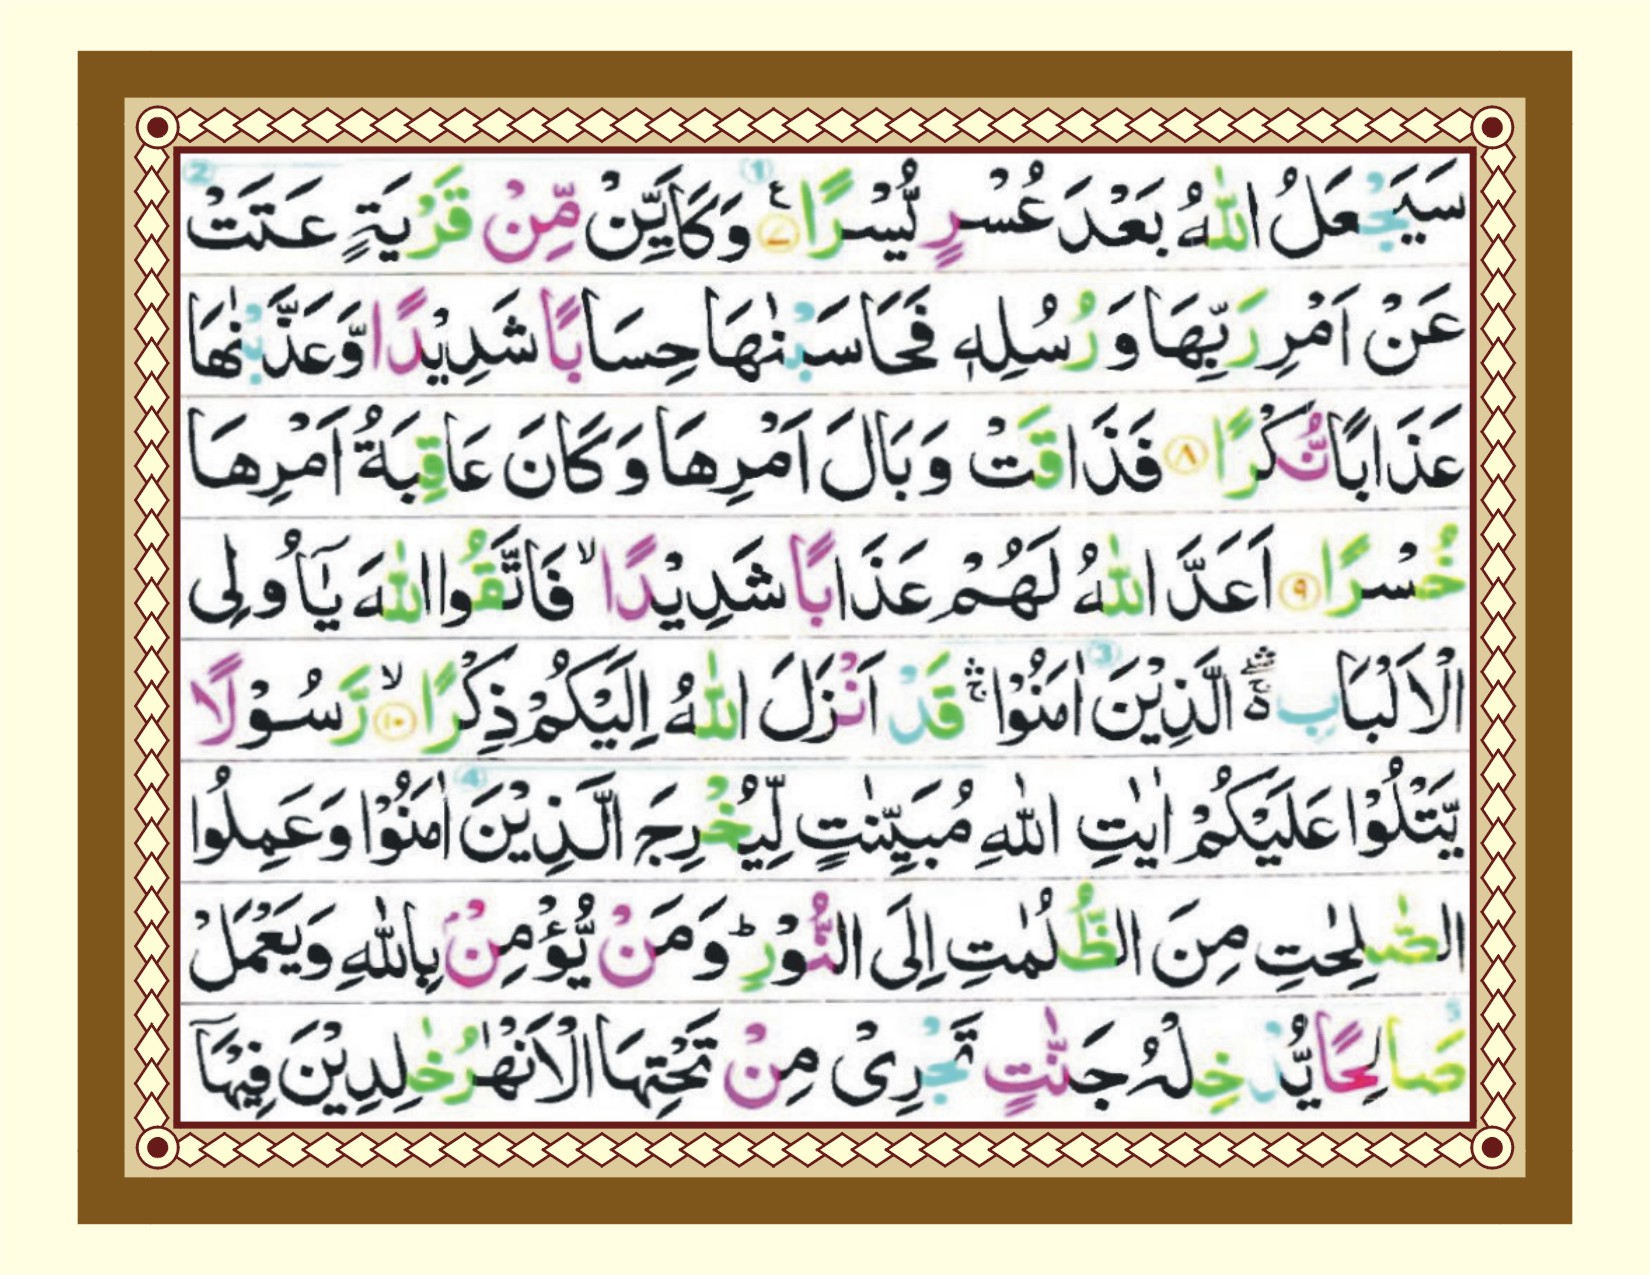 سَيَجْعَلُ اللّٰهُ بَعْدَ عُسْرٍ يُّسْرًا ۧ ﴿٧﴾ وَكَاَيِّنْ مِّنْ قَرْيَةٍ عَتَتْ
عَنْ اَمْرِ رَبِّهَا وَ رُسُلِهٖ فَحَاسَبْنٰهَا حِسَابًا شَدِيْدًا وَّعَذَّبْنٰهَا
عَذَابًا نُّكْرًا ﴿٨﴾ فَذَاقَتْ وَبَالَ اَمْرِهَا وَكَانَ عَاقِبَةُ اَمْرِهَا
خُسْرًا ﴿٩﴾ اَعَدَّ اللّٰهُ لَهُمْ عَذَابًا شَدِيْدًا ۙ فَاتَّقُوا اللّٰهَ يٰٓاُولِى
الْاَلْبَابِ ۛۚ ۖ الَّذِيْنَ اٰمَنُوْا ۛۚ قَدْ اَنْزَلَ اللّٰهُ اِلَيْكُمْ ذِكْرًا ۙ ﴿١٠﴾ رَّسُوْلًا
يَّتْلُوْا عَلَيْكُمْ اٰيٰتِ اللّٰهِ مُبَيِّنٰتٍ لِّيُخْرِجَ الَّذِيْنَ اٰمَنُوْا وَعَمِلُوا
الصّٰلِحٰتِ مِنَ الظُّلُمٰتِ اِلَى النُّوْرِ ؕ وَمَنْ يُّؤْمِنْۢ بِاللّٰهِ وَيَعْمَلْ
صَالِحًا يُّدْخِلْهُ جَنّٰتٍ تَجْرِىْ مِنْ تَحْتِهَا الْاَنْهٰرُ خٰلِدِيْنَ فِيْهَاۤ